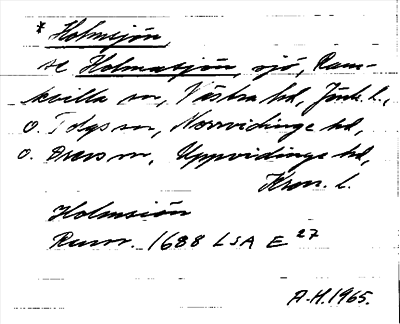 * Holmsjön,
se Holmasjön, sjö, Ram-
kvilla sn, Västra hd, Jönk. l.,
o. Tolgs sn, Norrvidinge hd,
o. Drevs sn, Uppvidinge hd,
Kron. l.
Holmsiön
Rum. 1688 LSA E 27
A.H. 1965.